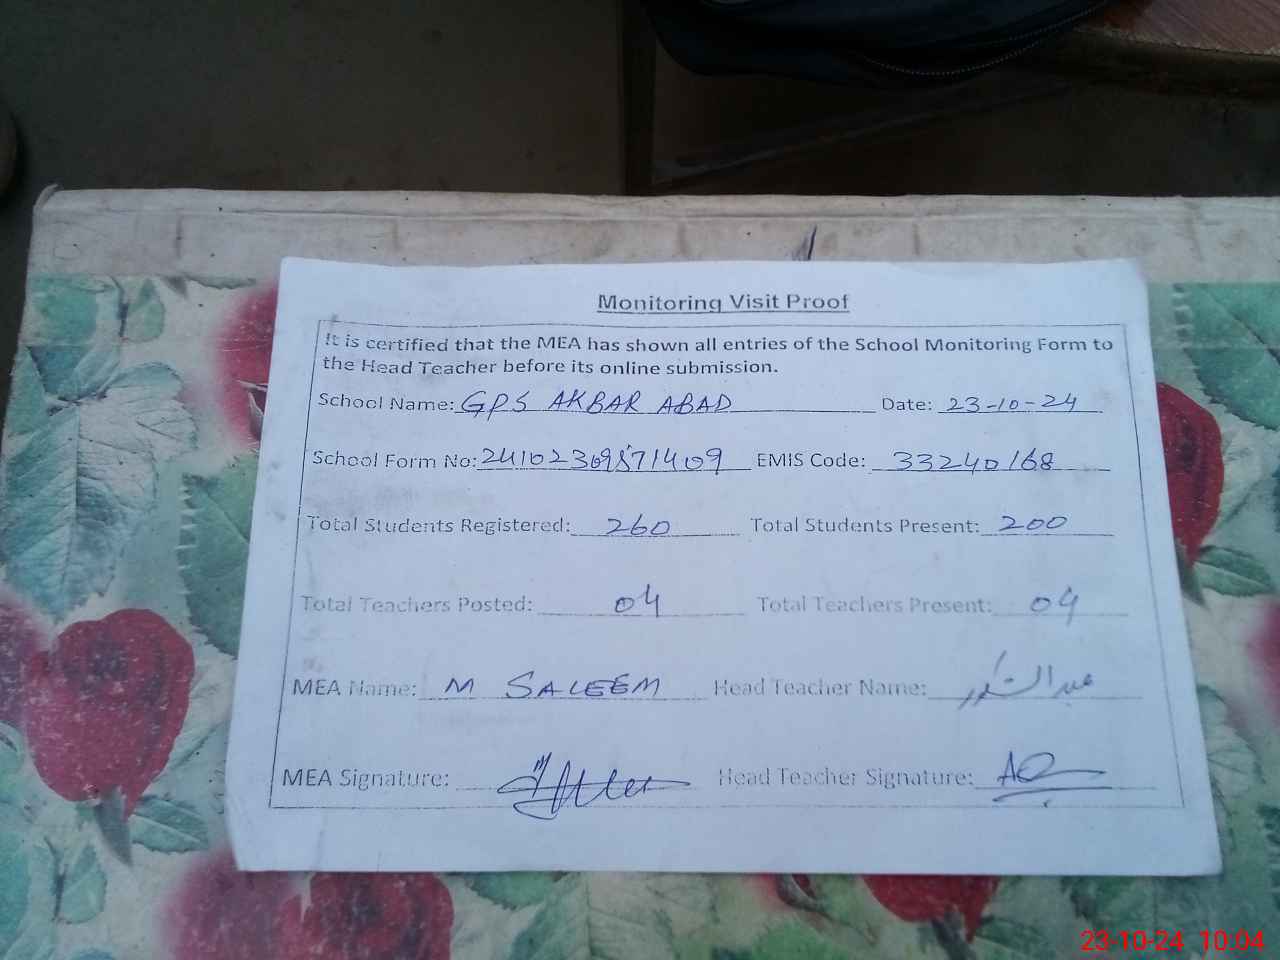 Monitoring Visit Proof
It is certified that the MEA has shown all entries of the School Monitoring Form to
the Head Teacher before its online submission.
School Name: GPS AKBAR ABAD Date: 23-10-24
School Form No: 24102309571409 EMIS Code: 33240168
Total Students Registered: 260 Total Students Present: 200
Total Teachers Posted: 04 Total Teachers Present: 04
MEA Name: M SALEEM Head Teacher Name: عبدالشکور
MEA Signature: Head Teacher Signature:
23-10-24 10:04